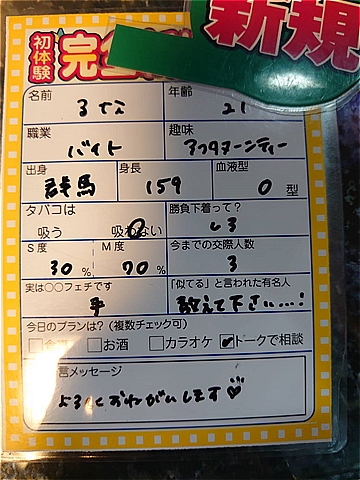 新規
初体験 完全
名前 年齢
るな 21
職業 趣味
バイト アフタヌーンティー
出身 身長 血液型
群馬 159 O 型
タバコは 勝負下着って?
吸う 吸わない しろ
S度 M度 今までの交際人数
30% 70% 3
実は○○フェチです 「似てる」と言われた有名人
手 教えて下さい…!
今日のプランは?(複数チェック可)
お酒 カラオケ トークで相談
言メッセージ
よろしくおねがいします♡